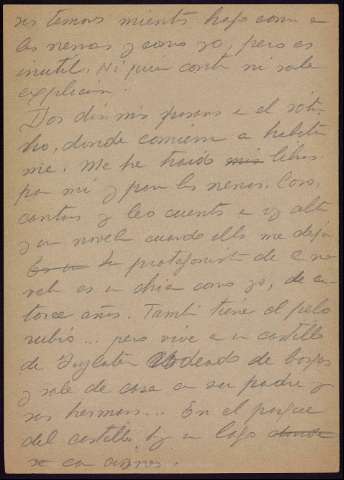 sus temores mientras hago coser a
las nenas y coso yo, pero es
inutil. Ni quien conteste ni sale
explicación.
Dos días más pasaron en el sóta-
no, donde comienzo a habituar-
me. Me he traído mis libros
para mí y para las nenas. Coso,
cantas y leo cuentos en voz alta
y una novela cuando ellas me dejan
La protagonista de la no-
vela es una chica como yo, de ca-
torce años. También tiene el pelo
rubio... pero vive en un castillo
de Inglaterra rodeado de bosques
y sale de caza con su padre y
sus hermanos... En el parque
del castillo hay un lago donde
se con cisnes.